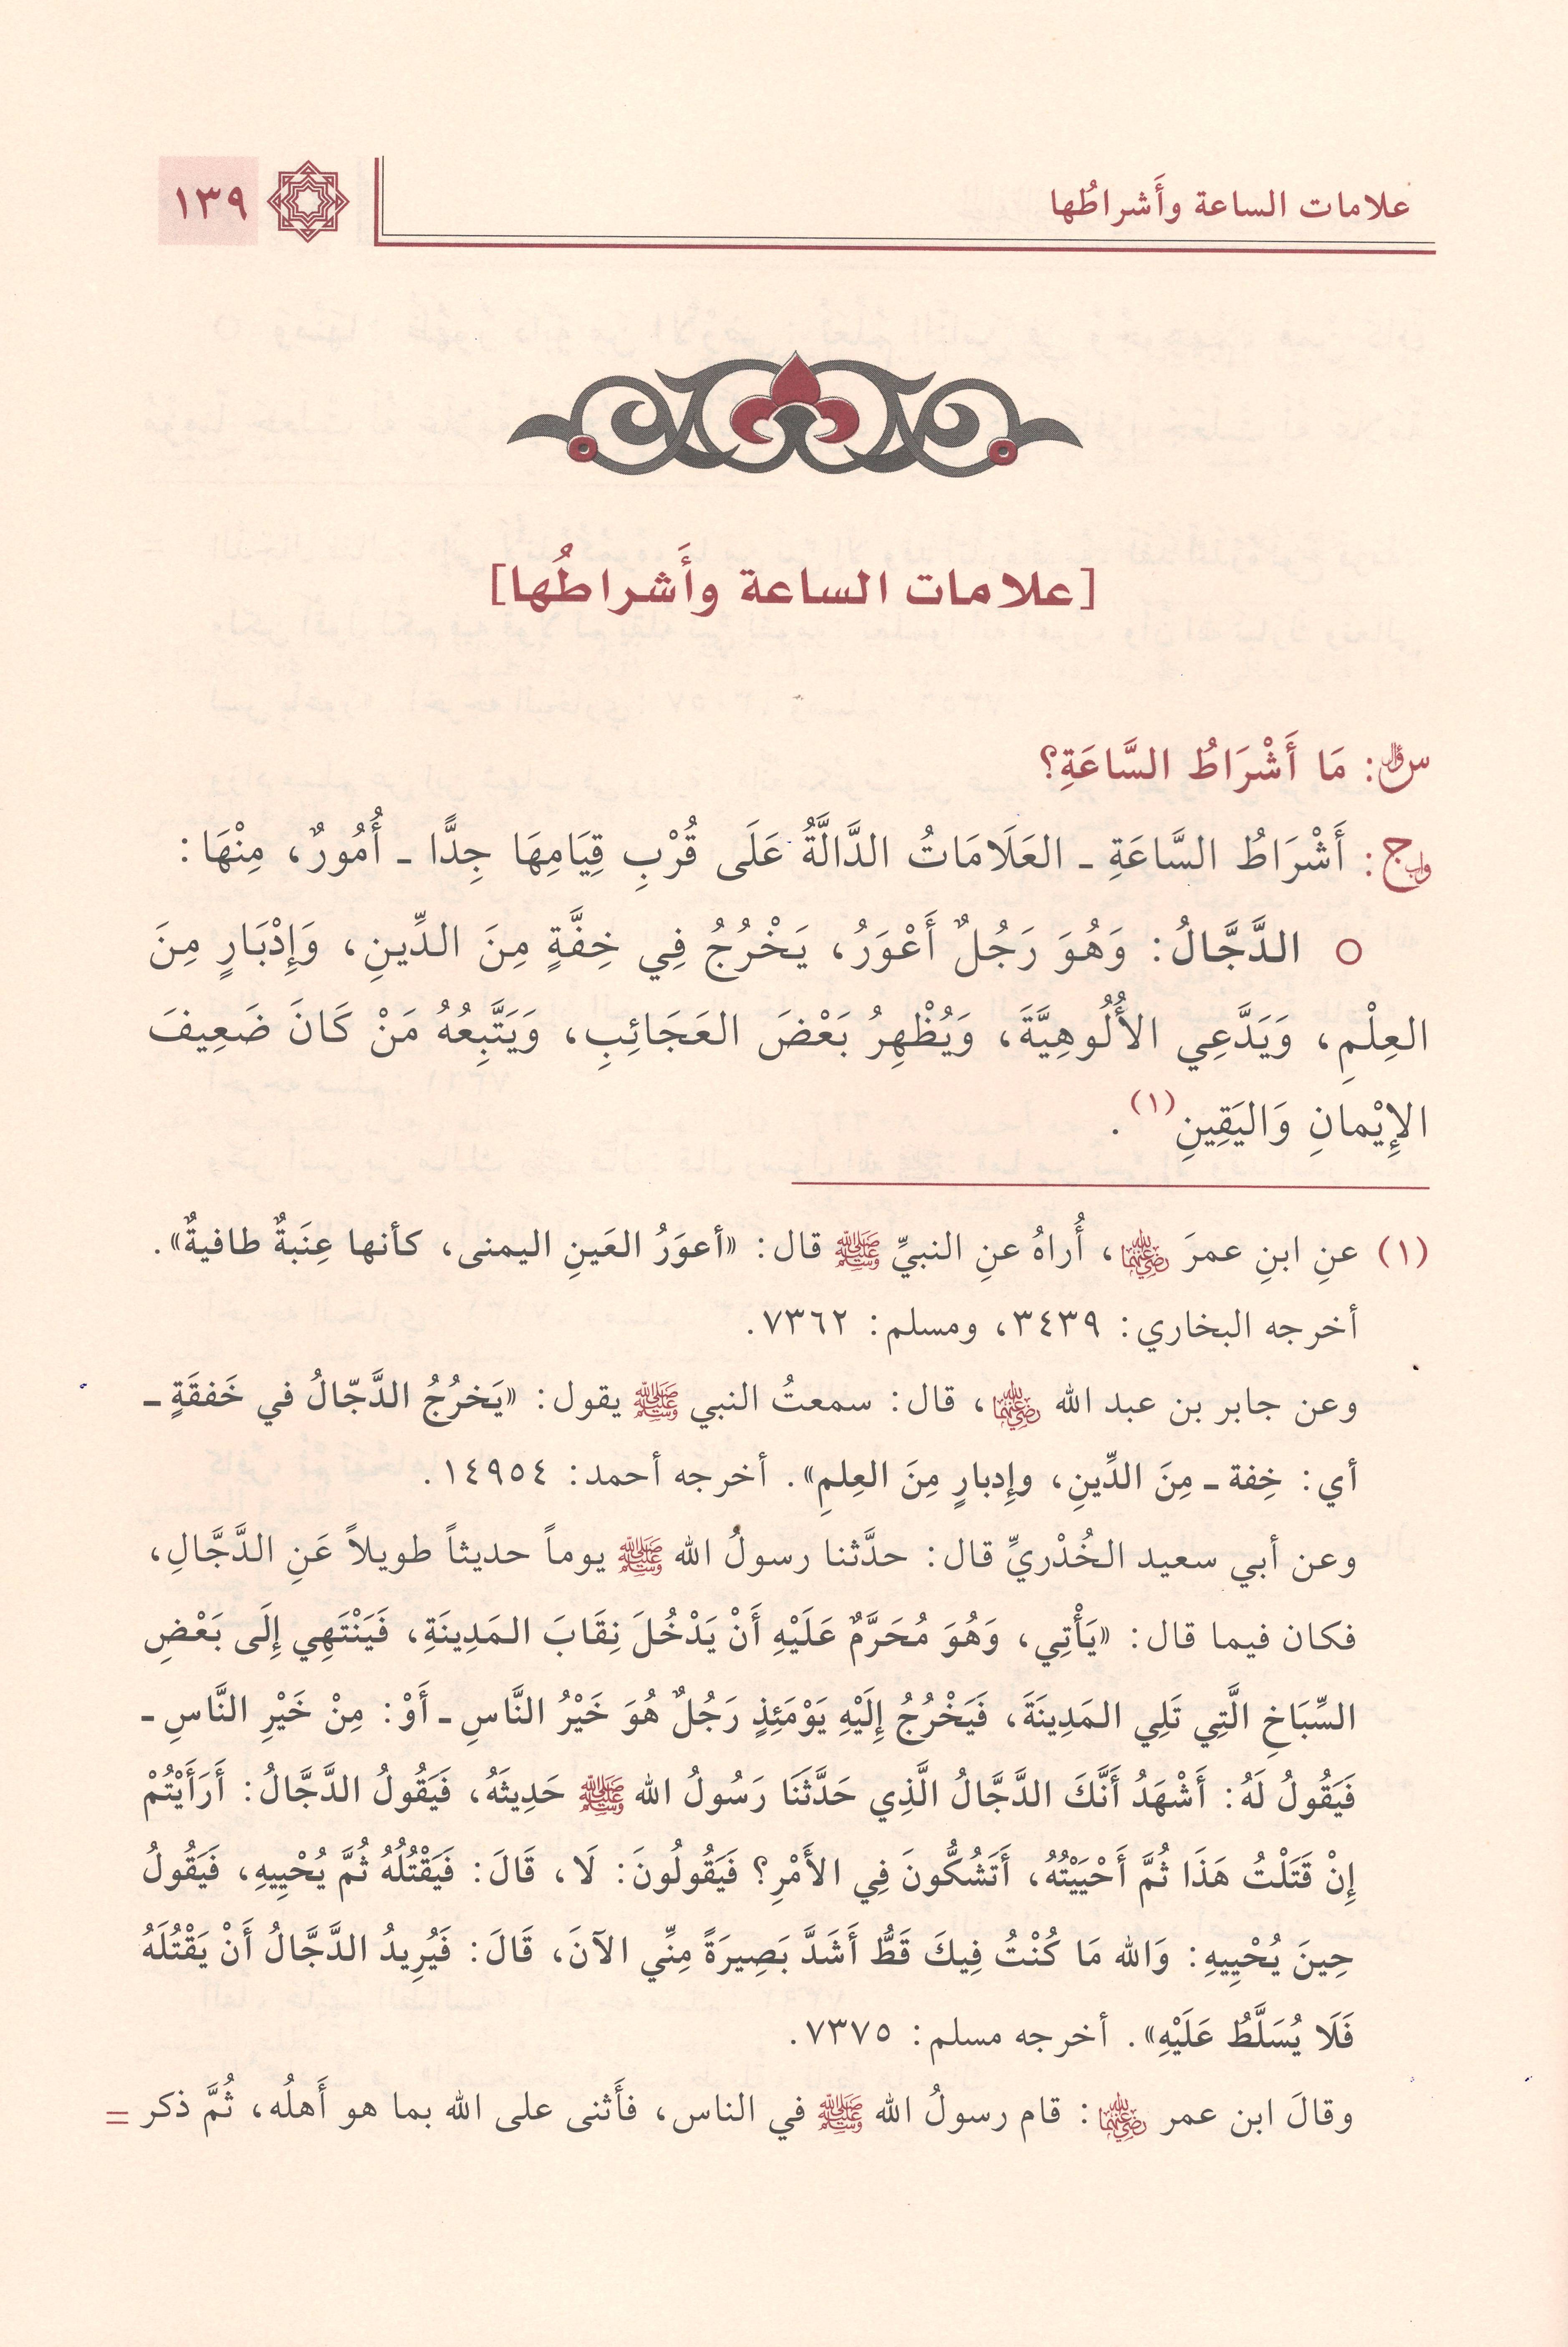 علامات الساعة وأَشراطُها
١٣٩
[علامات الساعة وأَشراطُها]
سؤال: مَا أَشْرَاطُ السَّاعَةِ؟
جواب: أَشْرَاطُ السَّاعَةِ ـ العَلَامَاتُ الدَّالَّةُ عَلَى قُرْبِ قِيَامِهَا جِدًّا ـ أُمُورٌ، مِنْهَا:
○ الدَّجَّالُ: وَهُوَ رَجُلٌ أَعْوَرُ، يَخْرُجُ فِي خِفَّةٍ مِنَ الدِّينِ، وَإِدْبَارٍ مِنَ
العِلْمِ، وَيَدَّعِي الأُلُوهِيَّةَ، وَيُظْهِرُ بَعْضَ العَجَائِبِ، وَيَتَّبِعُهُ مَنْ كَانَ ضَعِيفَ
الإِيْمانِ وَاليَقِينِ(١).
(١) عنِ ابنِ عمرَ رضي الله عنهما، أُراهُ عنِ النبيِّ ﷺ قال: «أعوَرُ العَينِ اليمنى، كأنها عِنَبةٌ طافيةٌ».
أخرجه البخاري: ٣٤٣٩، ومسلم: ٧٣٦٢.
وعن جابر بن عبد الله رضي الله عنهما، قال: سمعتُ النبي ﷺ يقول: «يَخرُجُ الدَّجّالُ في خَفقَةٍ ـ
أي: خِفة ـ مِنَ الدِّينِ، وإِدبارٍ مِنَ العِلمِ». أخرجه أحمد: ١٤٩٥٤.
وعن أبي سعيد الخُدْريِّ قال: حدَّثنا رسولُ الله ﷺ يوماً حديثاً طويلاً عَنِ الدَّجَّالِ،
فكان فيما قال: «يَأْتِي، وَهُوَ مُحَرَّمٌ عَلَيْهِ أَنْ يَدْخُلَ نِقَابَ المَدِينَةِ، فَيَنْتَهِي إِلَى بَعْضِ
السِّبَاخِ الَّتِي تَلِي المَدِينَةَ، فَيَخْرُجُ إِلَيْهِ يَوْمَئِذٍ رَجُلٌ هُوَ خَيْرُ النَّاسِ ـ أَوْ: مِنْ خَيْرِ النَّاسِ ـ
فَيَقُولُ لَهُ: أَشْهَدُ أَنَّكَ الدَّجَّالُ الَّذِي حَدَّثَنَا رَسُولُ الله ﷺ حَدِيثَهُ، فَيَقُولُ الدَّجَّالُ: أَرَأَيْتُمْ
إِنْ قَتَلْتُ هَذَا ثُمَّ أَحْيَيْتُهُ، أَتَشُكُّونَ فِي الأَمْرِ؟ فَيَقُولُونَ: لَا، قَالَ: فَيَقْتُلُهُ ثُمَّ يُحْيِيهِ، فَيَقُولُ
حِينَ يُحْيِيهِ: وَالله مَا كُنْتُ فِيكَ قَطُّ أَشَدَّ بَصِيرَةً مِنِّي الآنَ، قَالَ: فَيُرِيدُ الدَّجَّالُ أَنْ يَقْتُلَهُ
فَلَا يُسَلَّطُ عَلَيْهِ». أخرجه مسلم: ٧٣٧٥.
وقالَ ابن عمر رضي الله عنهما: قام رسولُ الله ﷺ في الناس، فأَثنى على الله بما هو أَهلُه، ثُمَّ ذكر =